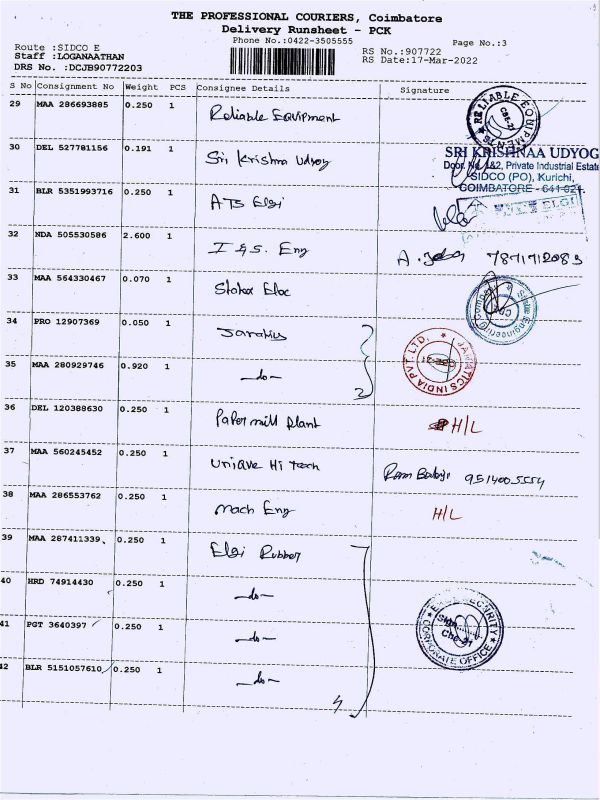 THE PROFESSIONAL COURIERS, Coimbatore
Delivery Runsheet - PCK
Phone No.:0422-3505555
Page No.:3
Route :SIDCO E
Staff :LOGANAATHAN
DRS No. :DCJB90772203
RS No.:907722
RS Date:17-Mar-2022
S No Consignment No Weight PCS Consignee Details Signature
29 MAA 286693885 0.250 1 Reliable Equipment
RELIABLE EQUIPMENTS
CBE-21
30 DEL 527781156 0.191 1 Sri Krishna Udyog
SRI KRISHNAA UDYOG
Door No. 1&2, Private Industrial Estate
SIDCO (PO), Kurichi,
COIMBATORE - 641 021.
31 BLR 5351993716 0.250 1 ATS Elgi
ELGI
32 NDA 505530586 2.600 1 I & S. Eng 7871712083
33 MAA 564330467 0.070 1
34 PRO 12907369 0.050 1
35 MAA 280929746 0.920 1 -do-
JAMATICS INDIA PVT. LTD.
36 DEL 120388630 0.250 1 Paper mill plant H/L
37 MAA 560245452 0.250 1 Uniave Hi Tech Ram Babji
38 MAA 286553762 0.250 1 Mach Eng H/L
39 MAA 287411339 0.250 1 Elgi Rubber
40 HRD 74914430 0.250 1 -do-
41 PGT 3640397 0.250 1 -do-
SECURITY
CORPORATE OFFICE
Cbe-21
42 BLR 5151057610 0.250 1 -do-
4